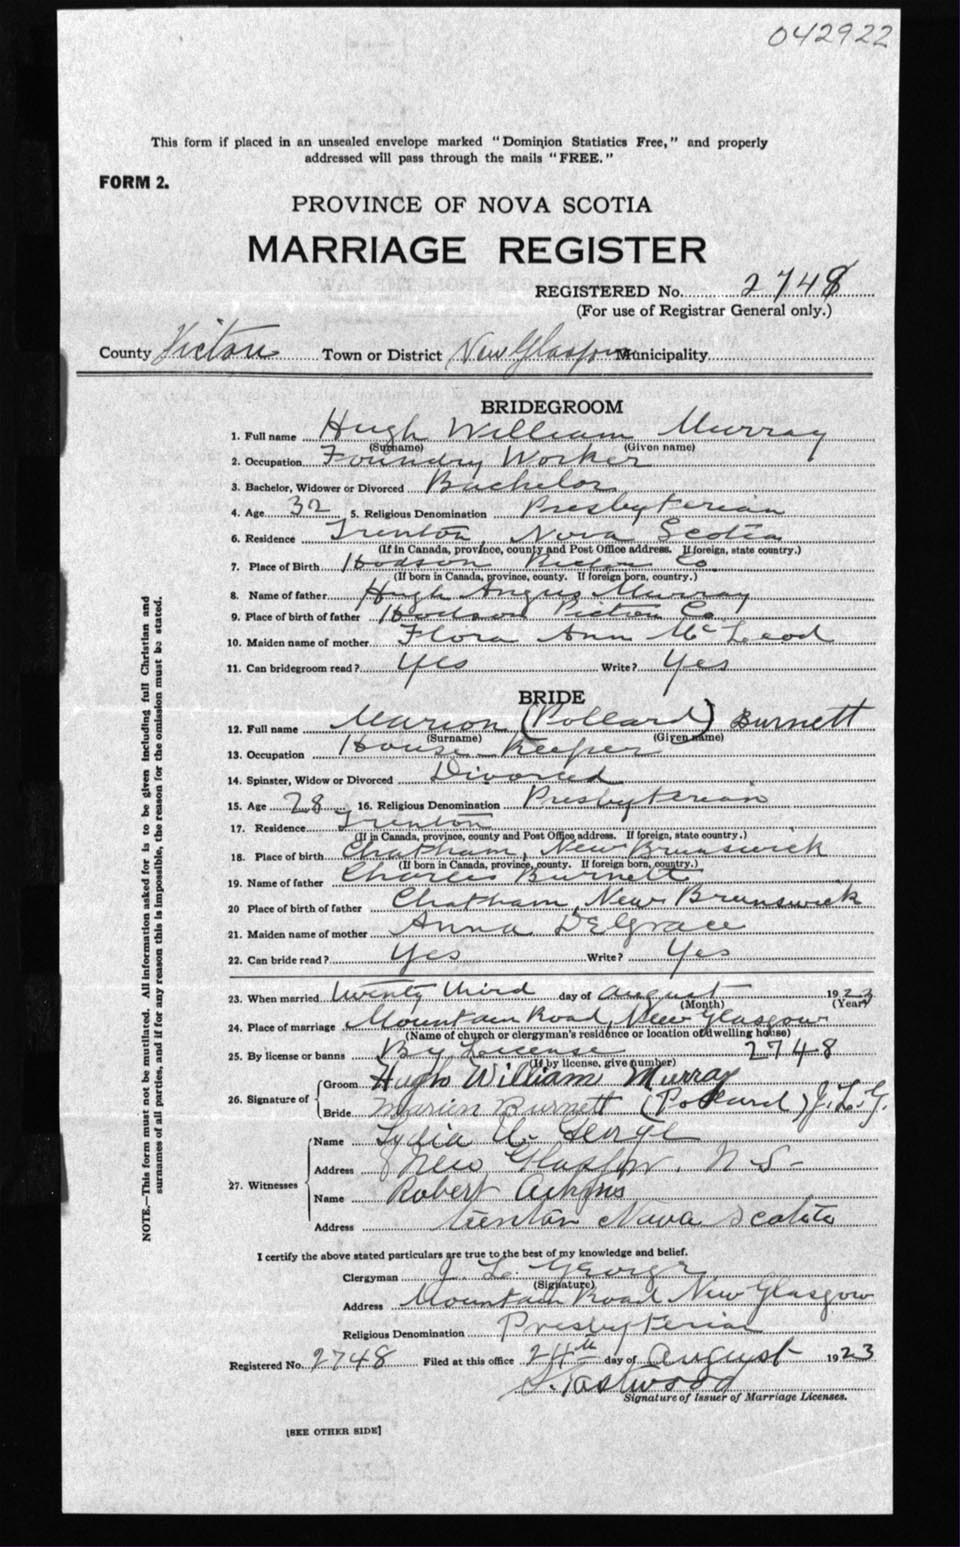 042922
This form if placed in an unsealed envelope marked "Dominion Statistics Free," and properly
addressed will pass through the mails "FREE."
FORM 2.
PROVINCE OF NOVA SCOTIA
MARRIAGE REGISTER
REGISTERED No. 2748
(For use of Registrar General only.)
County Pictou Town or District New Glasgow Municipality
BRIDEGROOM
1. Full name Hugh William Murray
(Surname) (Given name)
2. Occupation Foundry Worker
3. Bachelor, Widower or Divorced Bachelor
4. Age 32 5. Religious Denomination Presbyterian
6. Residence Trenton, Nova Scotia
(If in Canada, province, county and Post Office address. If foreign, state country.)
7. Place of Birth Hodson Pictou Co
(If born in Canada, province, county. If foreign born, country.)
8. Name of father Hugh Angus Murray
9. Place of birth of father Hodson Pictou Co
10. Maiden name of mother Flora Ann McLeod
11. Can bridegroom read? Yes Write? Yes
BRIDE
12. Full name Marion (Pollard) Burnett
(Surname) (Given name)
13. Occupation House Keeper
14. Spinster, Widow or Divorced Divorced
15. Age 28 16. Religious Denomination Presbyterian
17. Residence Trenton
(If in Canada, province, county and Post Office address. If foreign, state country.)
18. Place of birth Chatham, New Brunswick
(If born in Canada, province, county. If foreign born, country.)
19. Name of father Charles Burnett
20 Place of birth of father Chatham, New Brunswick
21. Maiden name of mother Anna DeGrace
22. Can bride read? Yes Write? Yes
23. When married twenty third day of August 1923
(Month) (Year)
24. Place of marriage Mountain Road, New Glasgow
(Name of church or clergyman's residence or location of dwelling house)
25. By license or banns By License 2748
(If by license, give number)
26. Signature of Groom Hugh William Murray
Bride Marion Burnett (Pollard) J.L.G.
27. Witnesses Name Lydia U. George
Address New Glasgow, N S-
Name Robert Adkins
Address Trenton Nova Scotia
I certify the above stated particulars are true to the best of my knowledge and belief.
Clergyman J. L. George
(Signature)
Address Mountain Road New Glasgow
Religious Denomination Presbyterian
Registered No. 2748 Filed at this office 24th day of August 1923
S. Eastwood
Signature of Issuer of Marriage Licenses.
[SEE OTHER SIDE]
NOTE.—This form must not be mutilated. All information asked for is to be given including full Christian and
surnames of all parties, and if for any reason this is impossible, the reason for the omission must be stated.